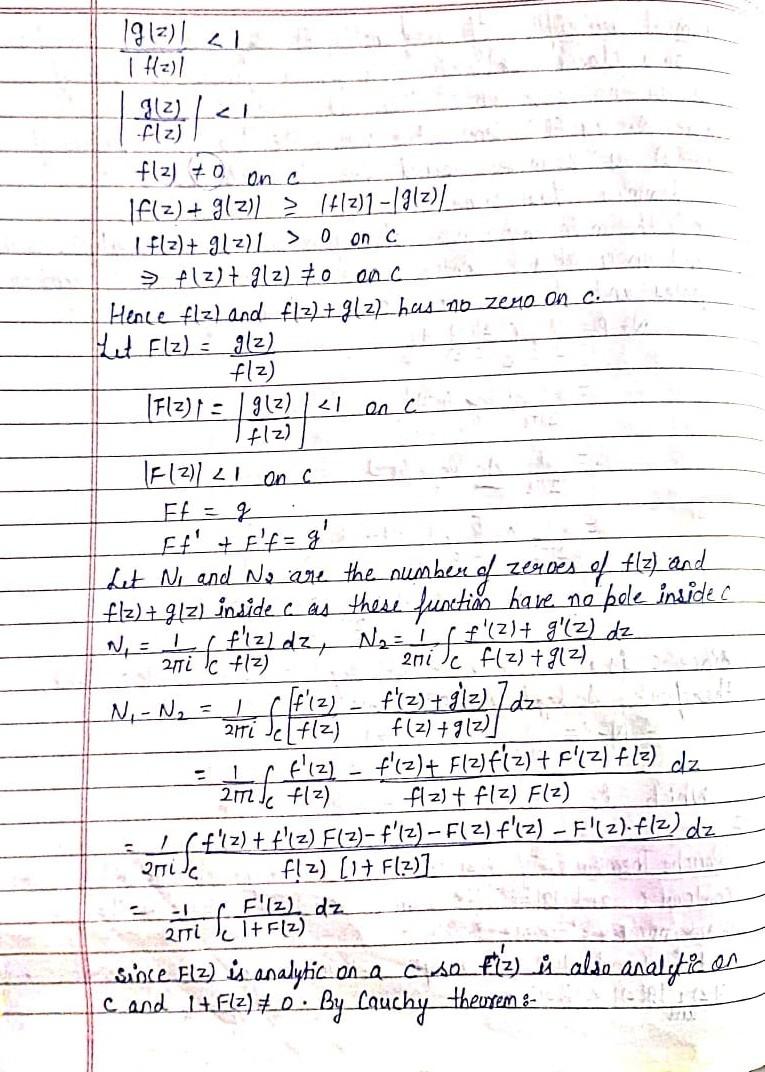 |g(z)| / |f(z)| < 1
|g(z)/f(z)| < 1
f(z) ≠ 0 on c
|f(z) + g(z)| ≥ |f(z)| - |g(z)|
|f(z) + g(z)| > 0 on c
⇒ f(z) + g(z) ≠ 0 on c
Hence f(z) and f(z) + g(z) has no zero on c.
Let F(z) = g(z)/f(z)
|F(z)| = |g(z)/f(z)| < 1 on c
|F(z)| < 1 on c
Ff = g
Ff' + F'f = g'
Let N₁ and N₂ are the number of zeroes of f(z) and
f(z) + g(z) inside c as these function have no pole inside c
N₁ = 1/2πi ∫_c f'(z)/f(z) dz, N₂ = 1/2πi ∫_c f'(z) + g'(z) / f(z) + g(z) dz
N₁ - N₂ = 1/2πi ∫_c [f'(z)/f(z) - f'(z) + g'(z) / f(z) + g(z)] dz
= 1/2πi ∫_c f'(z)/f(z) - f'(z) + F(z)f'(z) + F'(z) f(z) / f(z) + f(z) F(z) dz
= 1/2πi ∫_c f'(z) + f'(z) F(z) - f'(z) - F(z) f'(z) - F'(z).f(z) / f(z) [1 + F(z)] dz
= -1/2πi ∫_c F'(z) / 1 + F(z) dz
Since F(z) is analytic on a c so F'(z) is also analytic on
c and 1 + F(z) ≠ 0. By Cauchy theorem :-